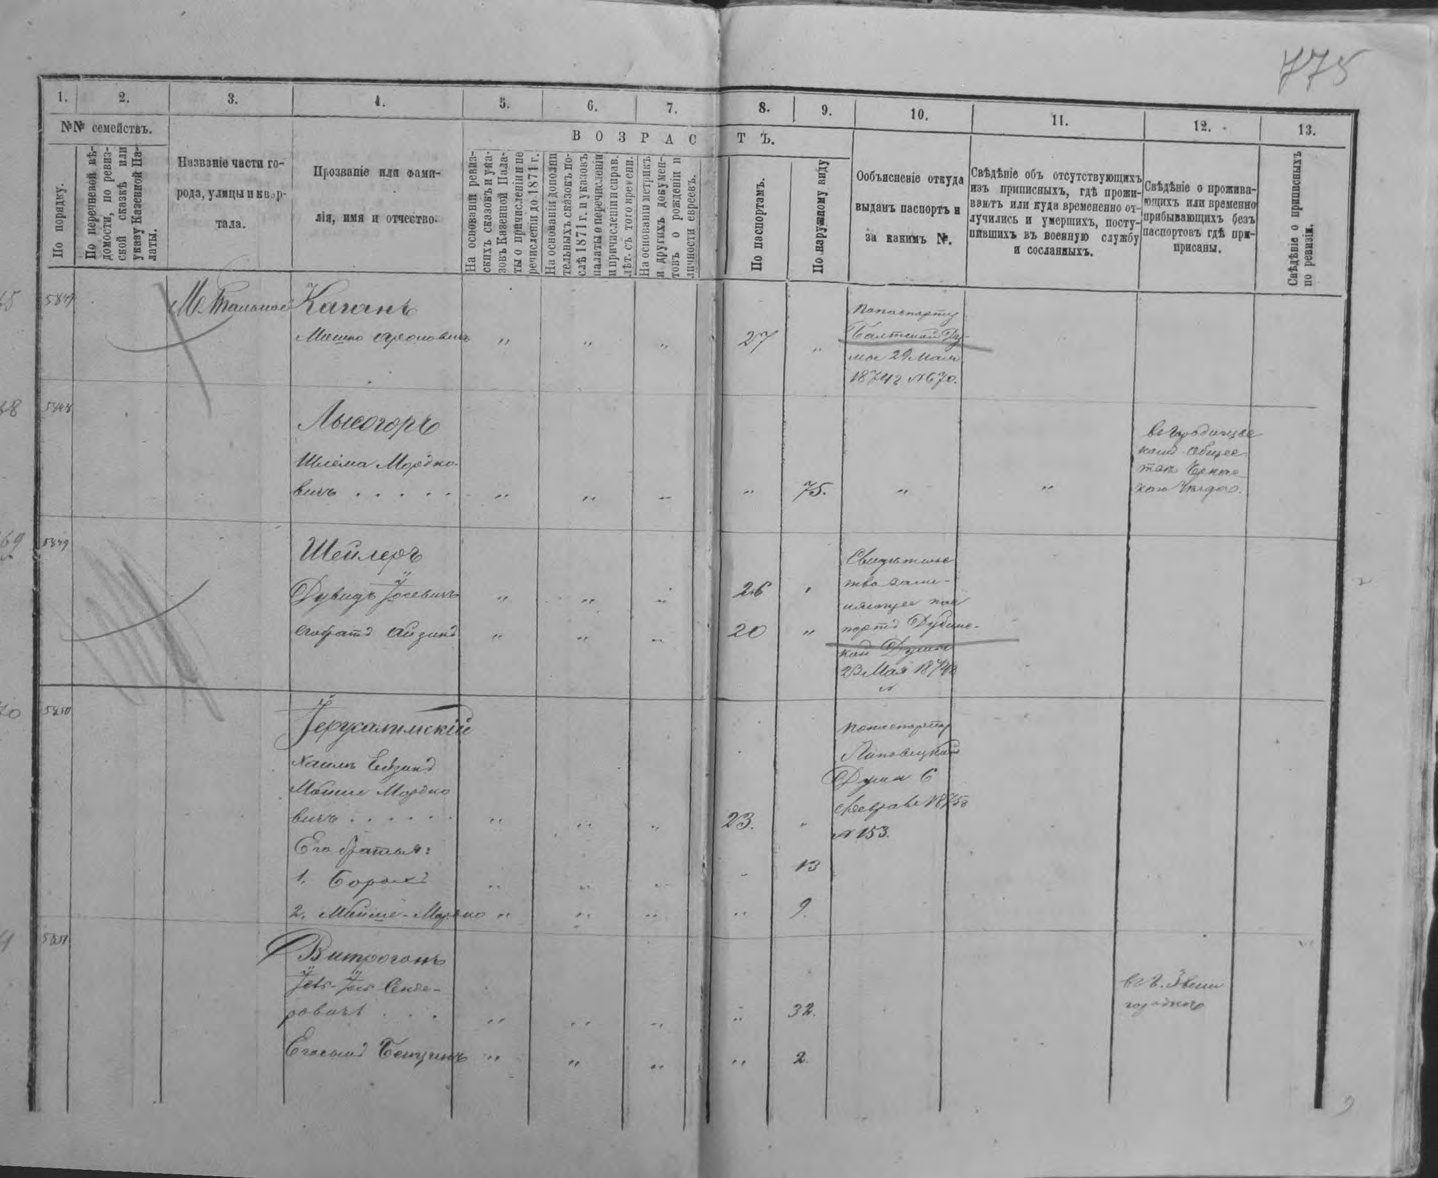 775
1. 2. 3. 4. 5. 6. 7. 8. 9. 10. 11. 12. 13.
№№ семействъ.
ВОЗРАСТЪ.
По порядку.
По перечневой вѣ-
домости, по ревиз-
ской сказкѣ или
указу Казенной Па-
латы.
Названіе части го-
рода, улицы и квар-
тала.
Прозваніе или фами-
лія, имя и отчество.
На основаніи ревиз-
скихъ сказокъ и ука-
зовъ Казенной Пала-
ты о причисленіи и пе
речисленіи до 1871 г.
На основаніи дополни
тельныхъ сказокъ по-
слѣ 1871 г. и указокъ
палаты о перечисленіи
и причисленіи и справ.
лѣт. съ того времени.
На основаніи метрикъ
и другихъ докумен-
товъ о рожденіи и
личности евреевъ.
По паспортамъ.
По наружному виду
Объясненіе откуда
выданъ паспортъ и
за какимъ №.
Свѣдѣніе объ отсутствующихъ
изъ приписныхъ, гдѣ прожи-
ваютъ или куда временно от-
лучились и умершихъ, посту-
пившихъ въ военную службу
и сосланныхъ.
Свѣдѣніе о прожива-
ющихъ или временно
прибывающихъ безъ
паспортовъ гдѣ при-
приписаны.
Свѣдѣніе о приписныхъ
по ревизіи.
5847
М. Тальное
Каганъ
Мошко Ароновичъ " " " 27 "
По паспорту
Балтской Ду-
мы 29 Мая
1874 г №670.
5848
Лысогоръ
Шлёма Мордко-
вичъ . . . . . " " " " 75. " "
5849
Шейлеръ
Дувидъ Іосевичъ " " " 26 "
Свидѣтельс
тво заме-
няющее пас
портъ Дубенс-
кой Думы
23 Мая
№
Айзикъ " " " 20 "
5850
Іерусалимскій
Мордко
вичъ . . . . . . " " " 23. "
По паспорту
Липовецкой
Думы 6
Февраля 1875
№ 153.
Его братья:
1. Борохъ " " " " 13
2. Мойше-Мордко " " " " 9.
5851
Витрогонъ
Іось Сенде-
ровичъ . . . " " " " 32.
въ г. Звени
городкѣ
Его сынъ Бенціонъ " " " " 2.